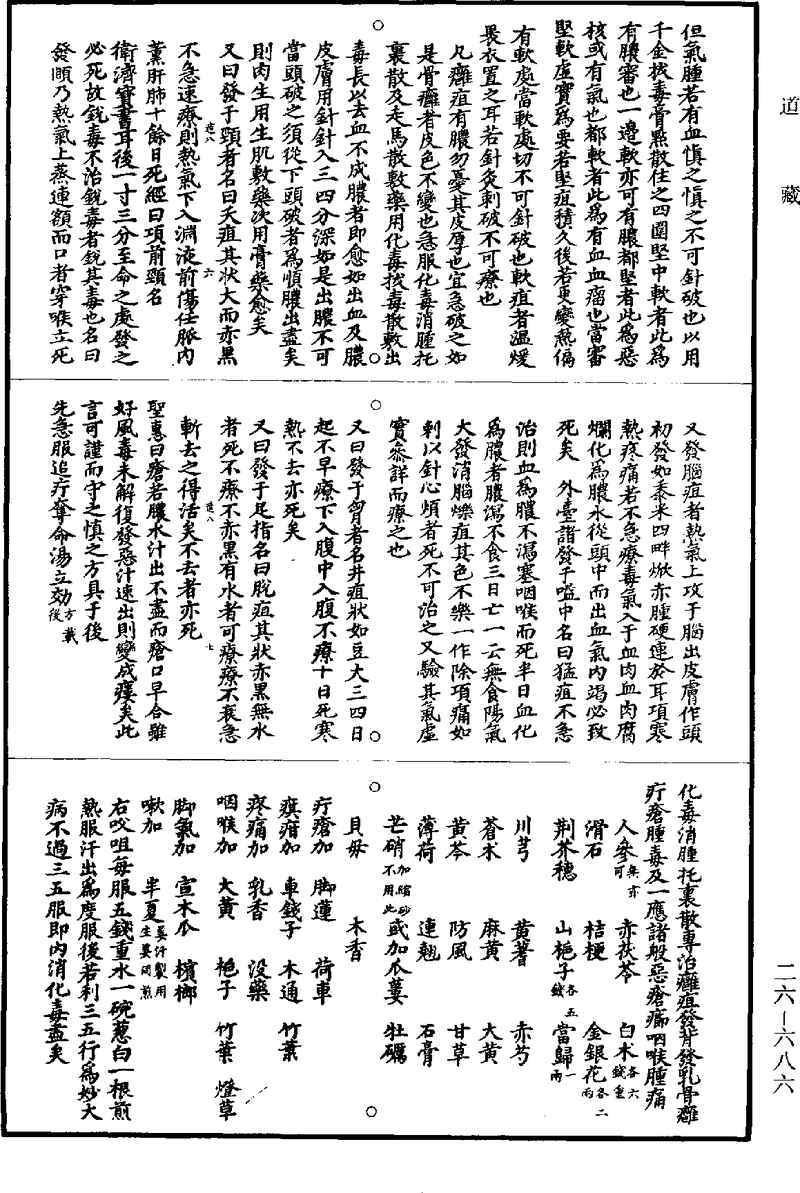 道藏
但氣腫若有血慎之慎之不可針破也以用
千金拔毒膏點散住之四圍堅中軟者此為
有膿審也一邊軟亦可有膿都堅者此為惡
核或有氣也都軟者此為有血血瘤也當審
堅軟虛實為要若堅疽積久後若更變熱偏
有軟處當軟處切不可針破也軟疽者溫煖
裹衣置之耳若針灸刺破不可療也
凡癰疽有膿勿憂其皮厚也宜急破之如
是骨癰者皮色不變也急服化毒消腫托
裏散及走馬散敷藥用化毒拔毒散敷出
毒長以去血不成膿者即愈如出血及膿
皮膚用針針入三四分深如是出膿不可
當頭破之須從下頭破者為順膿出盡矣
則肉生用生肌敷藥次用膏藥愈矣
又曰發于頸者名曰夭疽其狀大而赤黑
不急速療則熱氣下入淵液前傷任脈內
薰肝肺十餘日死經曰項前頸名
衛濟寶書耳後一寸三分至命之處發之
必死故銳毒不治銳毒者銳其毒也名曰
發頤乃熱氣上蒸連額而口者穿喉立死
又發腦疽者熱氣上攻于腦出皮膚作頭
初發如黍米四畔焮赤腫硬連於耳項寒
熱疼痛若不急療毒氣入于血肉血肉腐
爛化為膿水從頭中而出血氣內竭必致
死矣　外臺諸發于嗌中名曰猛疽不急
治則血為膿不瀉塞咽喉而死半日血化
為膿者膿瀉不食三日亡一云無食陽氣
大發消腦爍疽其色不樂一作除項痛如
刺以針心煩者死不可治之又驗其氣虛
實參詳而療之也
又曰發于胷者名井疽狀如豆大三四日
起不早療下入腹中入腹不療十日死寒
熱不去亦死矣
又曰發于足指名曰脫疽其狀赤黑無水
者死不療不赤黑有水者可療療不衰急
斬去之得活矣不去者亦死
聖惠曰瘡若膿水汁出不盡而瘡口早合雖
好風毒未解復發惡汁速出則變成瘻矣此
言可謹而守之慎之方具于後
先急服追疔奪命湯立効方載後
化毒消腫托裏散專治癰疽發背發乳骨癰
疔瘡腫毒及一應諸般惡瘡癤咽喉腫痛
人參無亦可　赤茯苓　白术各六錢重
滑石　桔梗　金銀花各二兩
荆芥穗　山梔子各五錢　當歸一兩
川芎　黃蓍　赤芍
蒼术　麻黃　大黃
黃芩　防風　甘草
薄荷　連翹　石膏
芒硝加縮砂不用此　或加瓜蔞　牡礪
貝母　木香
疔瘡加　脚蓮　荷車
癀疳加　車錢子　木通　竹葉
疼痛加　乳香　没藥
咽喉加　大黃　梔子　竹葉　燈草
脚氣加　宣木瓜　檳榔
嗽加　半夏薑汁製用生薑同煎
右㕮咀每服五錢重水一碗蔥白一根煎
熱服汗出為度服後若利三五行為妙大
病不過三五服即內消化毒盡矣
二六—六八六